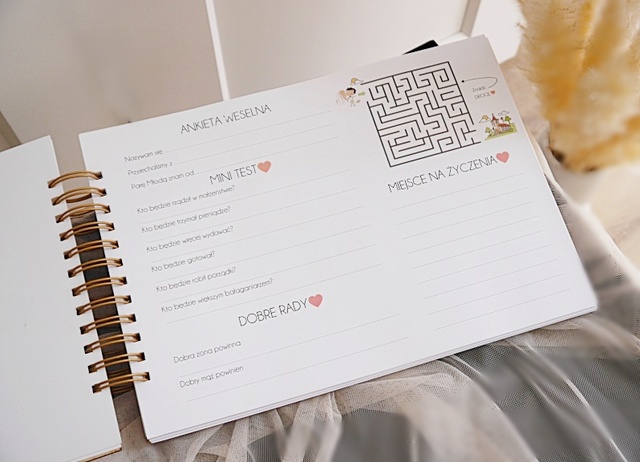 ANKIETA WESELNA
Nazywam się
Przyjechałam/em z
Parę Młodą znam od
MINI TEST
Kto będzie rządził w małżeństwie?
Kto będzie trzymał pieniądze?
Kto będzie więcej wydawać?
Kto będzie gotował?
Kto będzie robił porządki?
Kto będzie większym bałaganiarzem?
DOBRE RADY
Dobra żona powinna
Dobry mąż powinien
MIEJSCE NA ŻYCZENIA